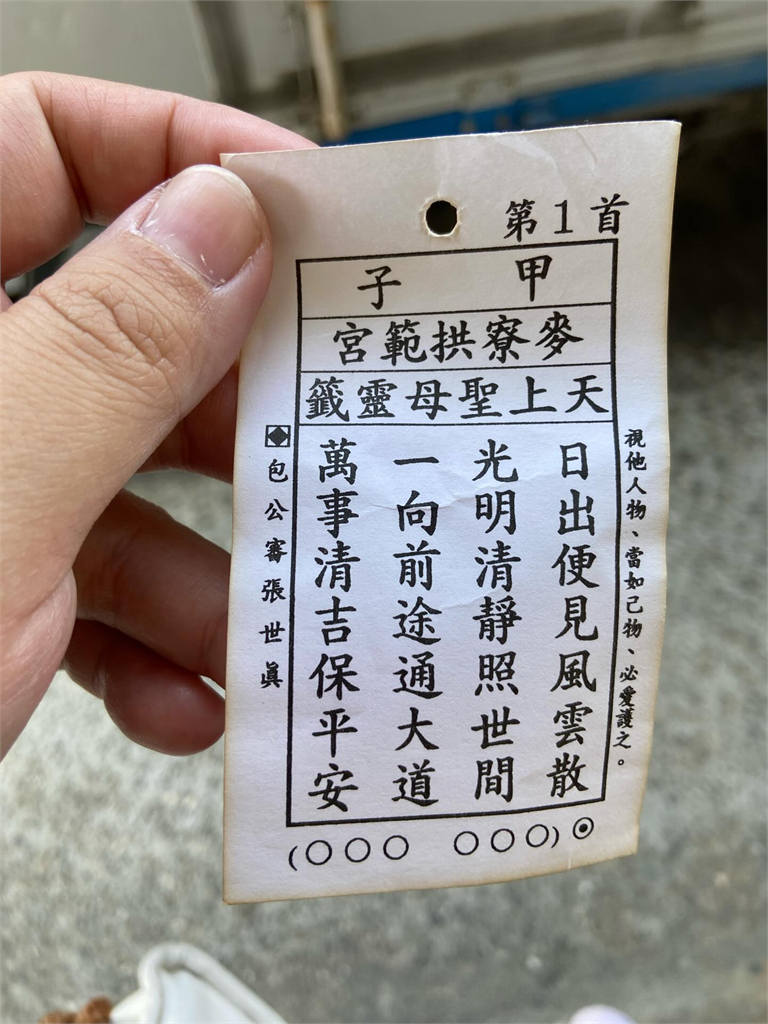 第1首
甲子
麥寮拱範宮
天上聖母靈籤
視他人物、當如己物、必愛護之。
日出便見風雲散
光明清靜照世間
一向前途通大道
萬事清吉保平安
◈包公審張世眞
⊙(○○○ ○○○)